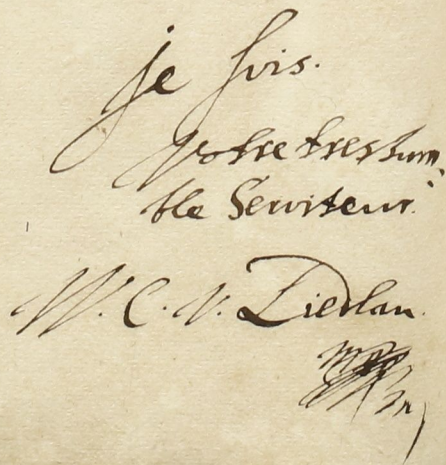 je suis.
Votre treshum,
ble Serviteur.
W. C. V. Diedlau.